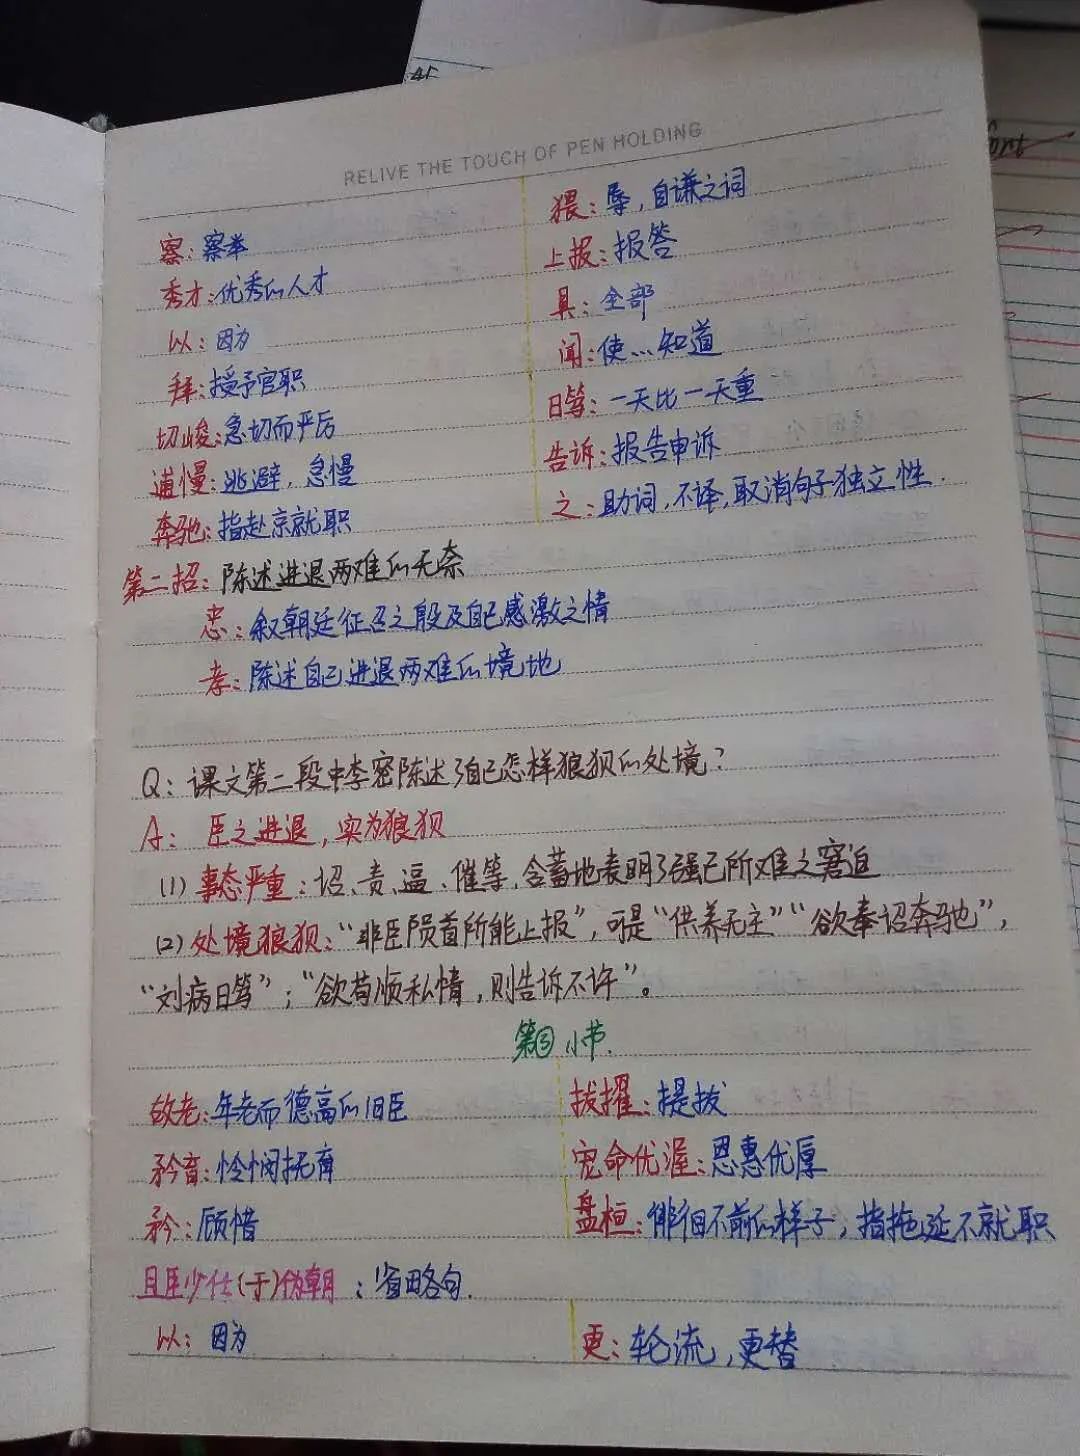 RELIVE THE TOUCH OF PEN HOLDING
察：察举
秀才：优秀的人才
以：因为
拜：授予官职
切峻：急切而严厉
逋慢：逃避，怠慢
奔驰：指赴京就职
猥：辱，自谦之词
上报：报答
具：全部
闻：使…知道
日笃：一天比一天重
告诉：报告申诉
之：助词，不译，取消句子独立性．
第二招：陈述进退两难的无奈
忠：叙朝廷征召之殷及自己感激之情
孝：陈述自己进退两难的境地
Q：课文第二段中李密陈述了自己怎样狼狈的处境？
A：臣之进退，实为狼狈
(1) 事态严重：诏、责、逼、催等，含蓄地表明了强己所难之窘迫
(2) 处境狼狈：“非臣陨首所能上报”，可是“供养无主”“欲奉诏奔驰”，
“刘病日笃”；“欲苟顺私情，则告诉不许”。
第③小节．
故老：年老而德高的旧臣
矜育：怜悯抚育
矜：顾惜
且臣少仕(于)伪朝：省略句．
以：因为
拔擢：提拔
宠命优渥：恩惠优厚
盘桓：徘徊不前的样子，指拖延不就职
更：轮流，更替